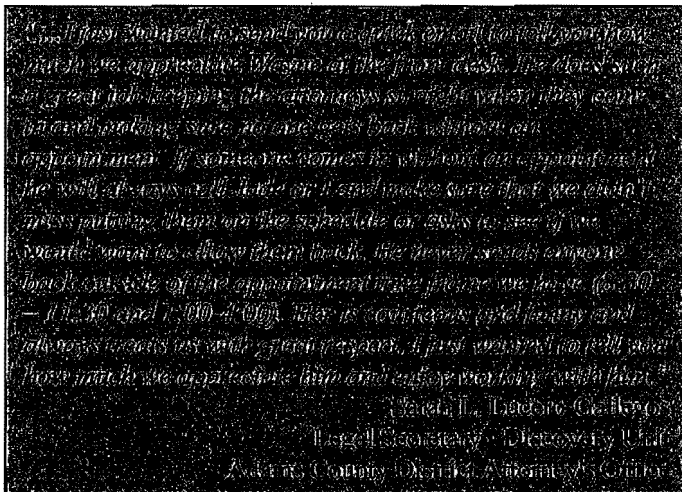 "...I just wanted to send you a quick email to tell you how
much we appreciate at the front desk. He does such
a great job keeping the attorneys straight when they come
in and making sure no one gets back without an
appointment. If someone comes in without an appointment
he will always call Jade or I and make sure that we didn't
miss putting them on the schedule or asks to see if we
would want to allow them back. He never sends anyone
back outside of the appointment time frame we have (8:30
– 11:30 and 1:00-4:00). He is courteous and funny and
always treats us with great respect. I just wanted to tell you
how much we appreciate him and enjoy working with him."
L. Lucero
Legal Secretary - Discovery Unit
Adams County District Attorney's Office